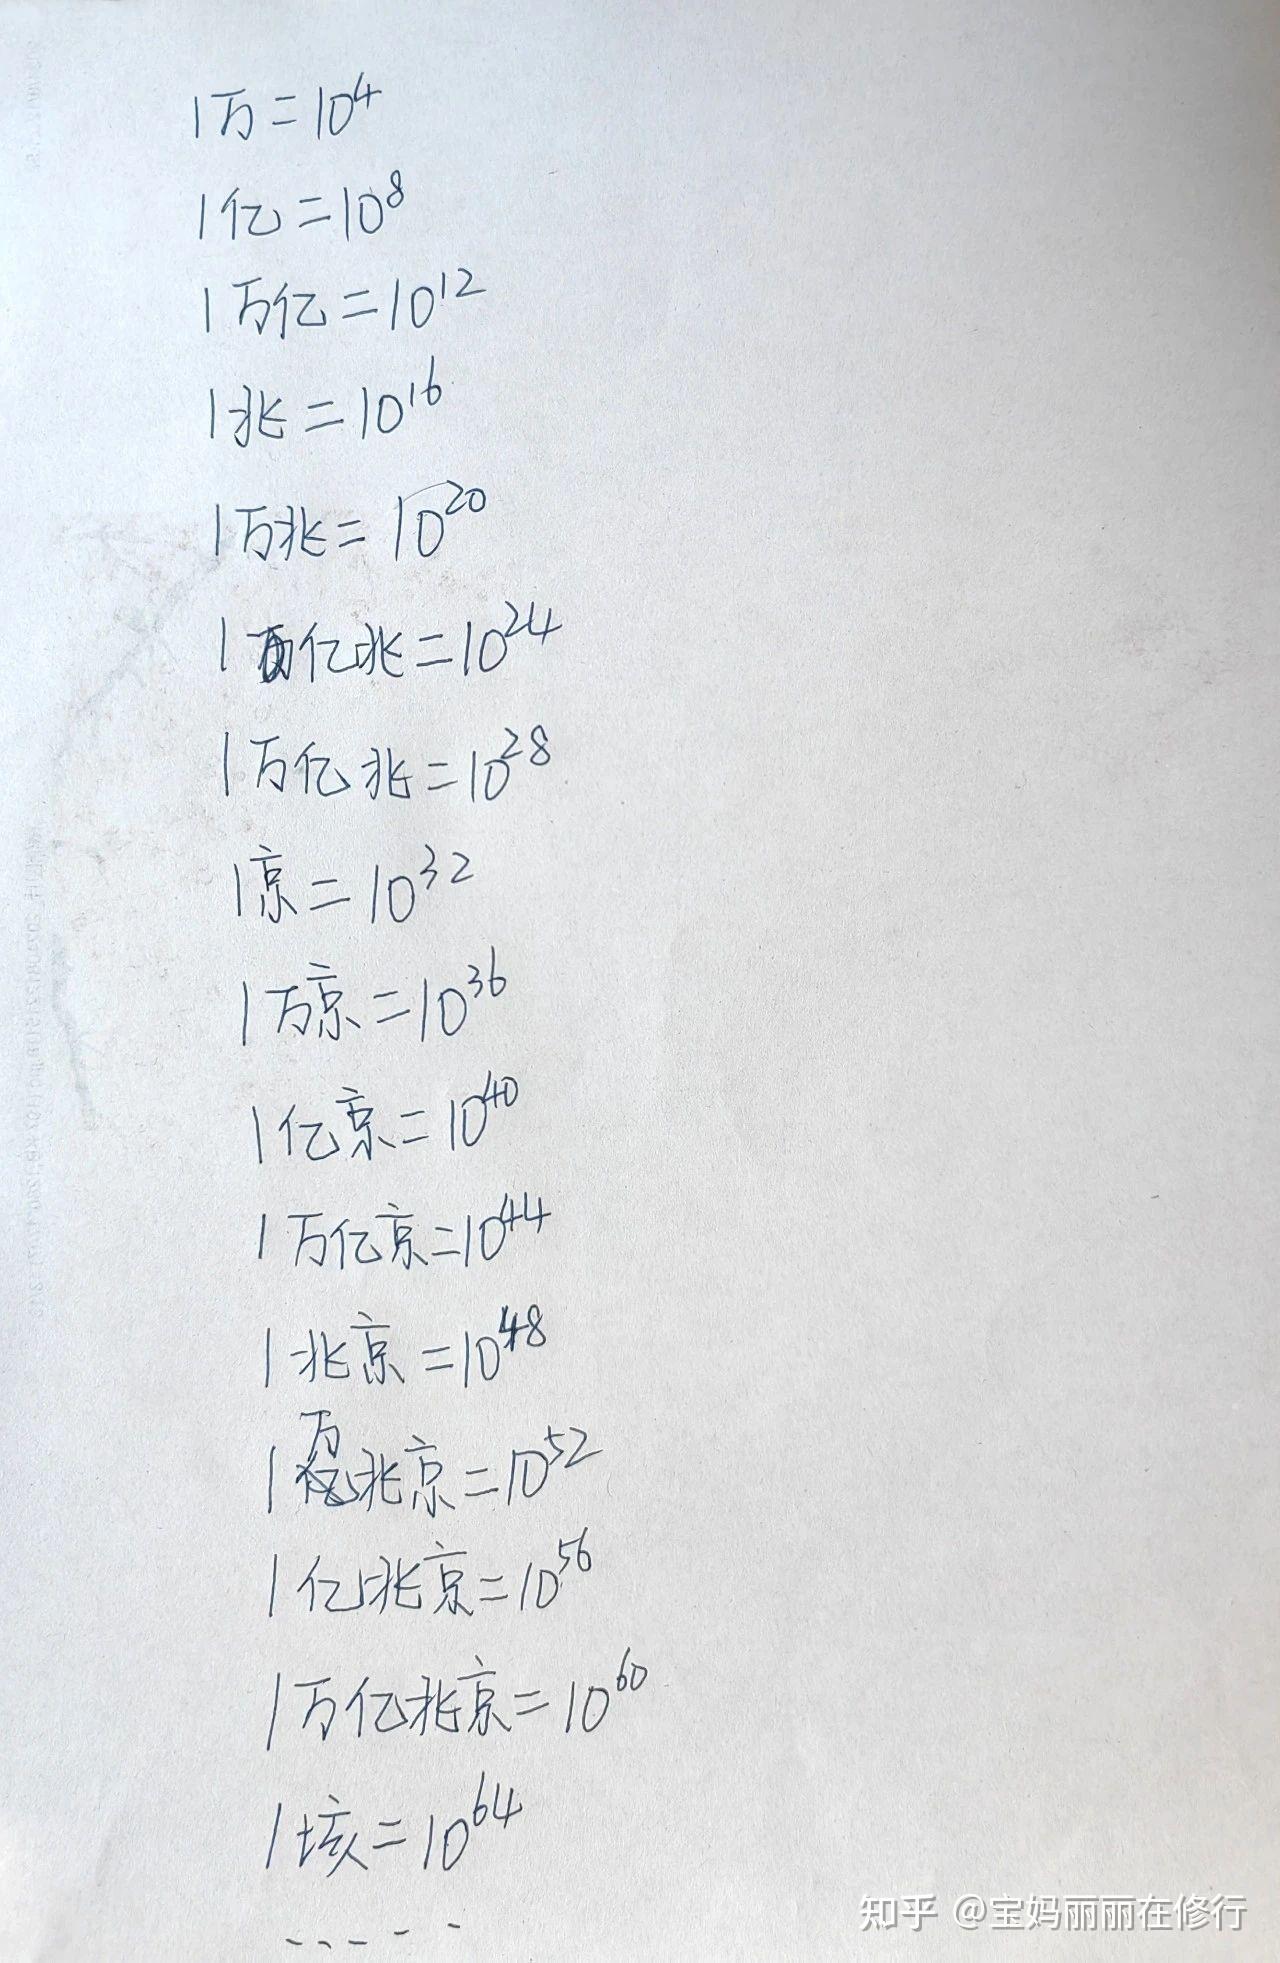 1万=10⁴
1亿=10⁸
1万亿=10¹²
1兆=10¹⁶
1万兆=10²⁰
1亿兆=10²⁴
1万亿兆=10²⁸
1京=10³²
1万京=10³⁶
1亿京=10⁴⁰
1万亿京=10⁴⁴
1兆京=10⁴⁸
1万兆京=10⁵²
1亿兆京=10⁵⁶
1万亿兆京=10⁶⁰
1垓=10⁶⁴
-----
知乎 @宝妈丽丽在修行